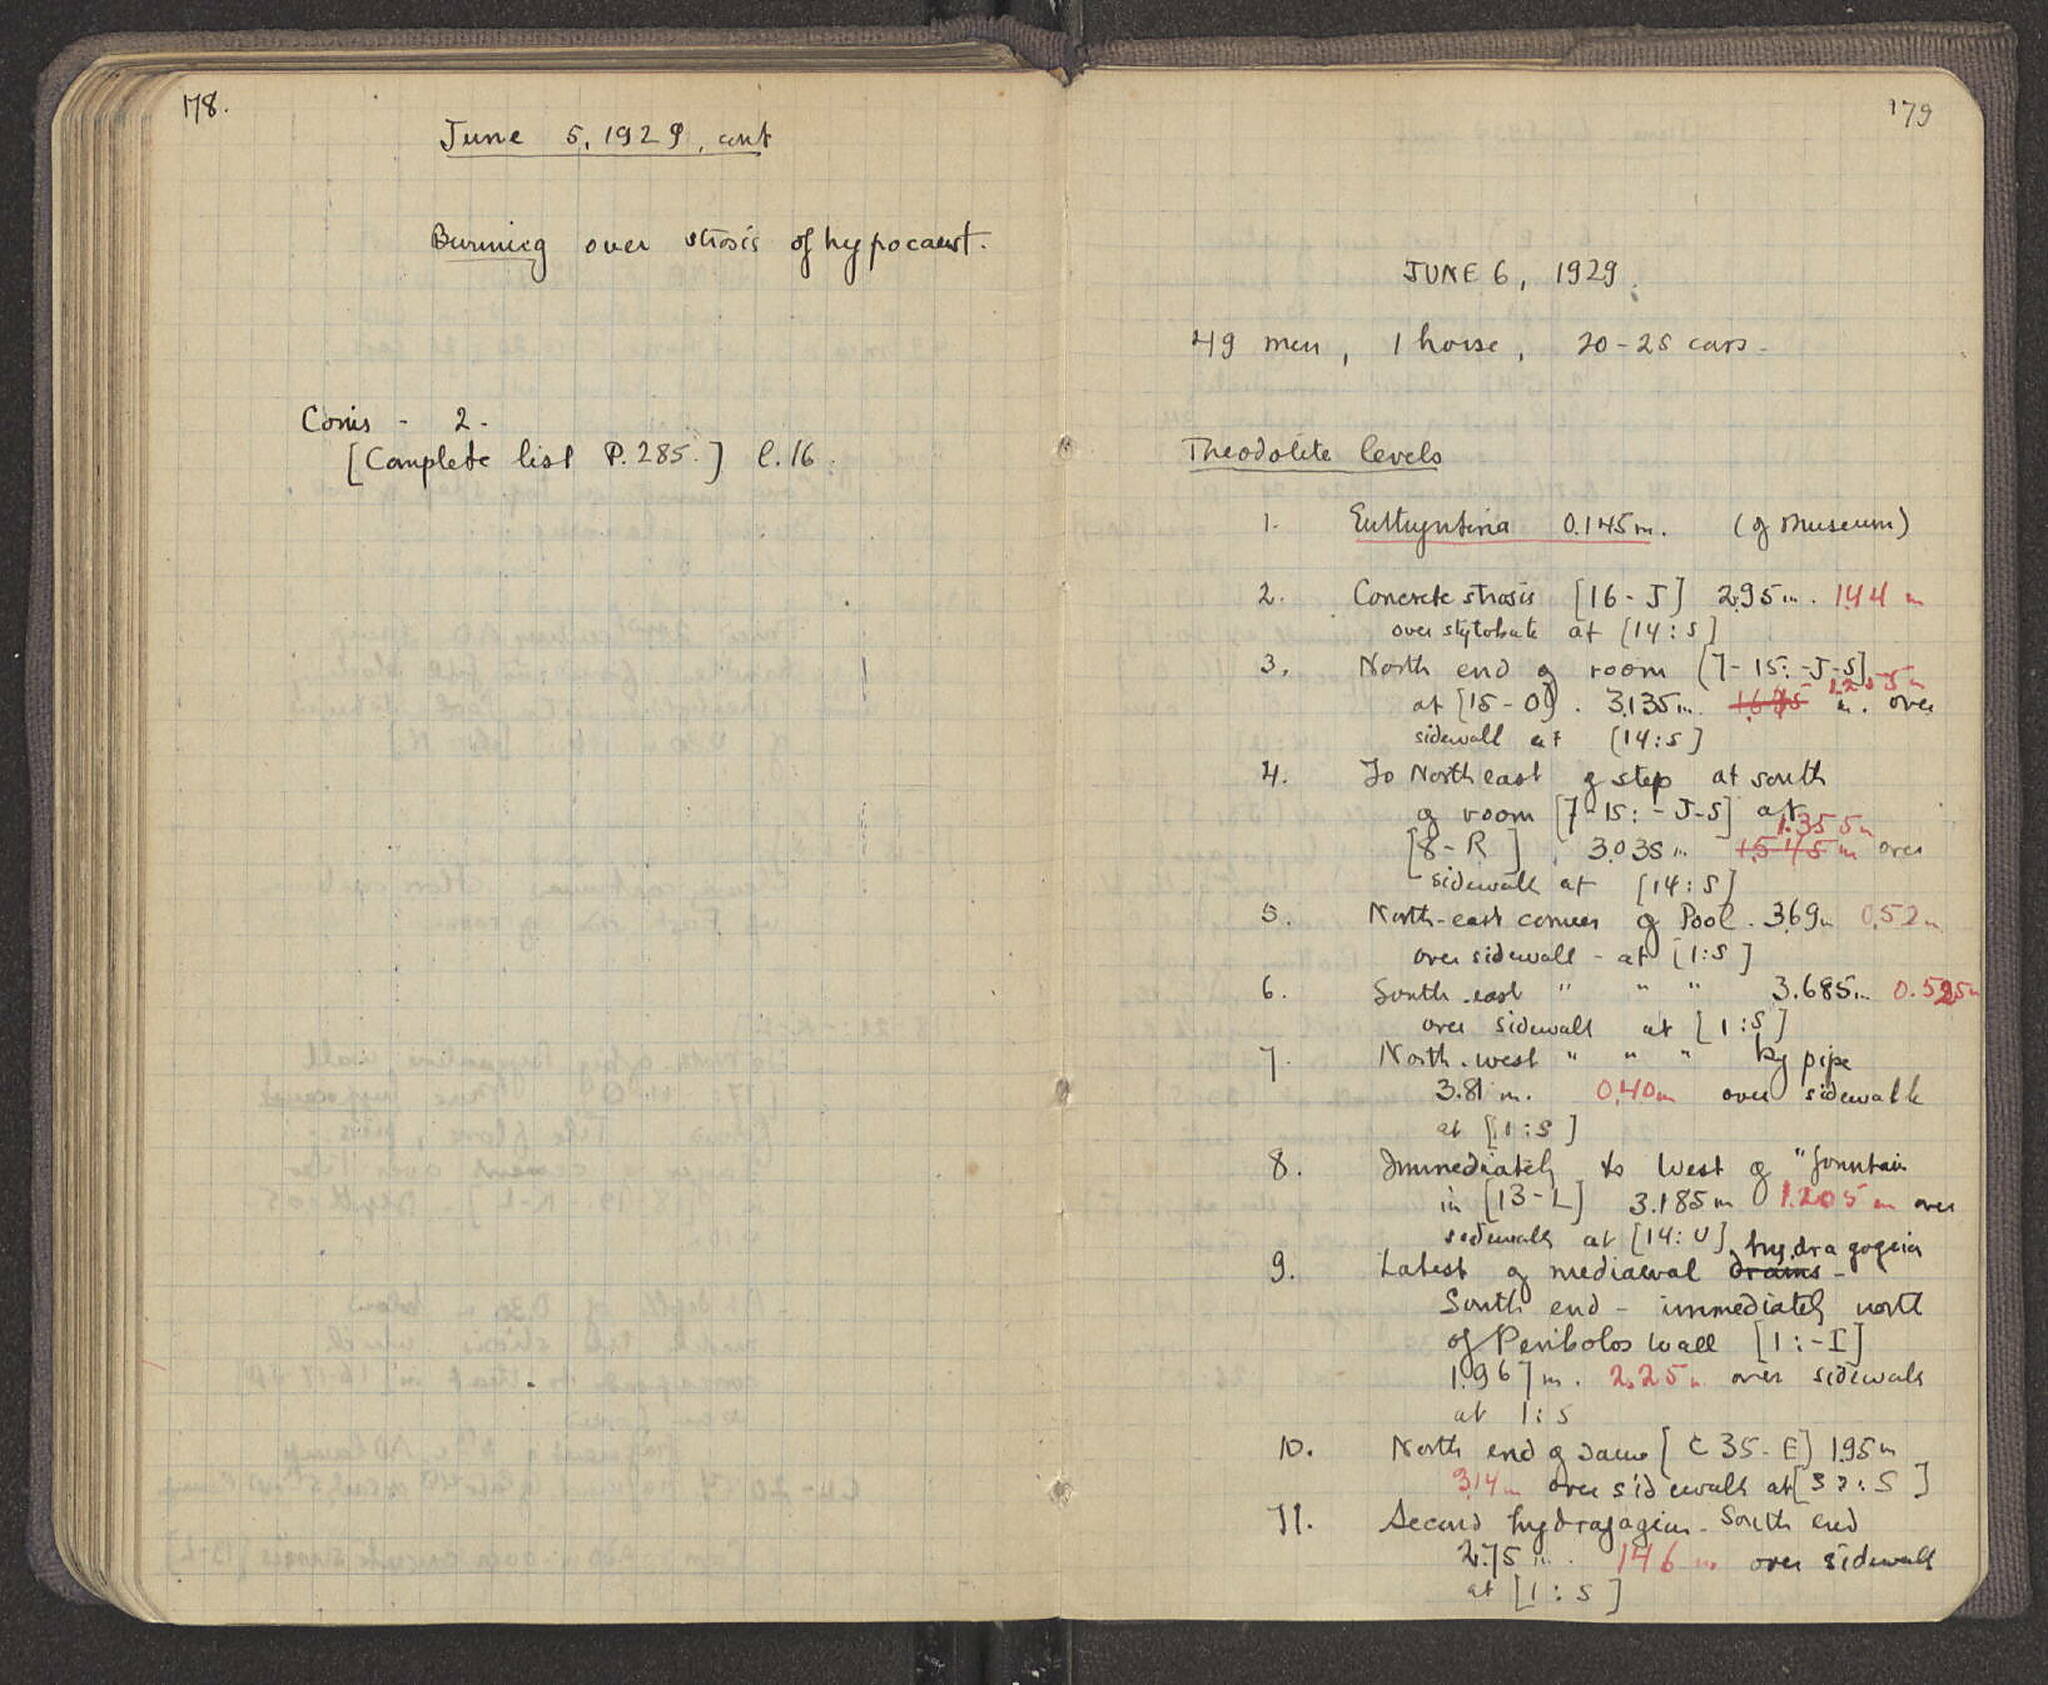 178.
June 5, 1929, cont
Burning over strosis of hypocaust.
Coins - 2.
[Complete list P. 285.] l. 16
179
JUNE 6, 1929.
49 men, 1 horse, 20-25 cars.
Theodolite levels
1. Euthynteria 0.145 m. (of Museum)
2. Concrete strosis [16-J] 2.95 m. 1.44 m
over stylobate at [14:S]
3. North end of room [7-15:-J-S]
at [15-O]. 3.135 m. 1.255 m. over
sidewall at [14:S]
4. To North east of step at south
of room [7-15:-J-S] at
1.355 m
[8-R]. 3.035 m 1.545 m over
sidewalk at [14:S]
5. North-east corner of Pool. 3.69 m 0.52 m
over sidewalk - at [1:S]
6. South-east " " " 3.685 m. 0.525 m
over sidewalk at [1:S]
7. North-west " " " by pipe
3.81 m. 0.40 m over sidewalk
at [1:S]
8. Immediately to West of "fountain
in [13-L] 3.185 m 1.205 m over
sidewalk at [14:U]
hydragogeia
9. Latest of mediaeval drains -
South end - immediately north
of Peribolos wall [1:-I]
1.967 m. 2.25 m over sidewalk
at 1:S
10. North end of same [C 35-E] 1.95 m
3.14 m over sidewalk at [37:S]
11. Second hydragogeion - South end
2.75 m. 1.46 m over sidewalk
at [1:S]